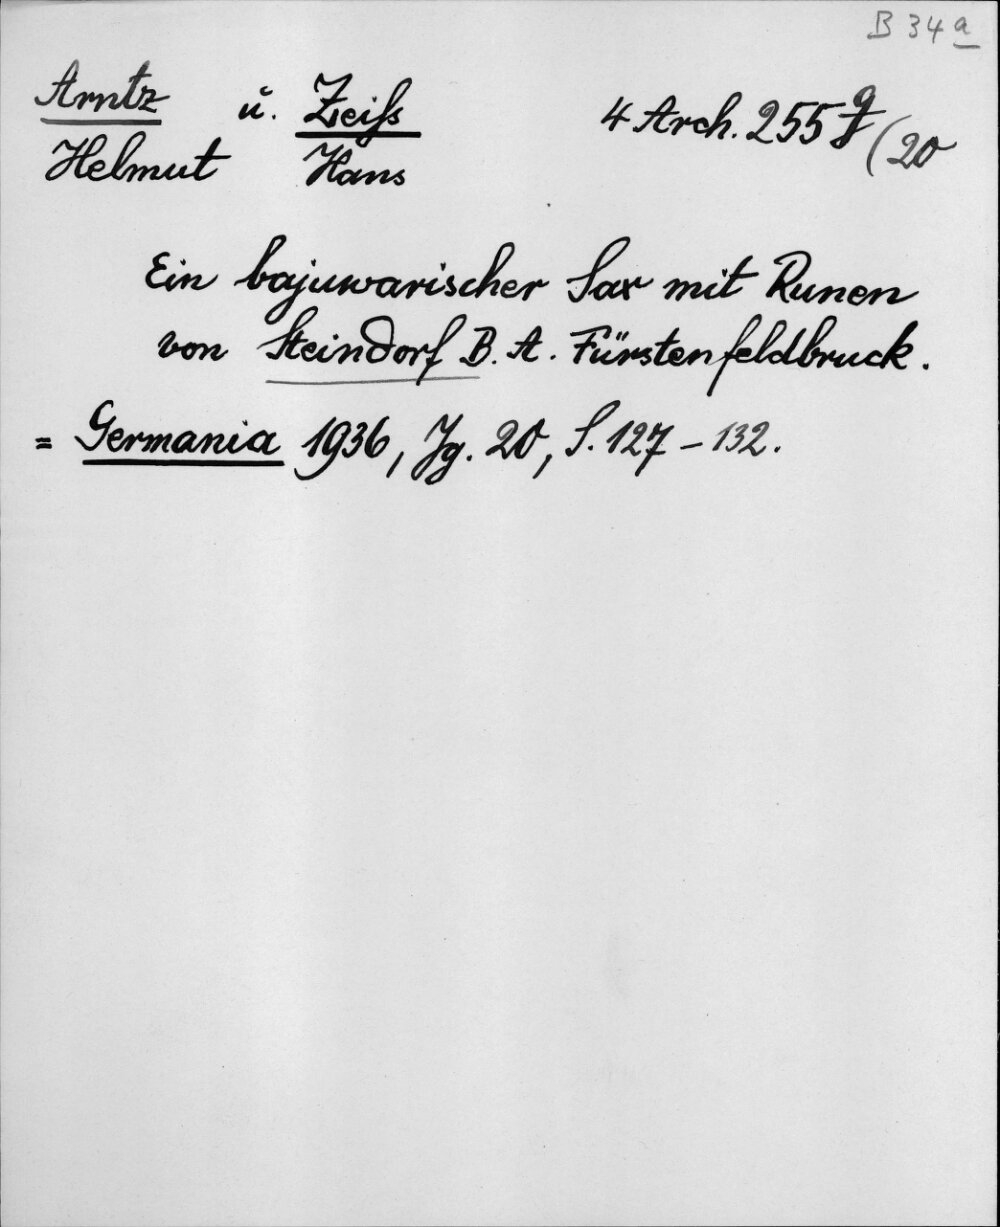 B 34 a
Arntz u. Zeiß 4 Arch. 255 g (20
Helmut Hans
Ein bajuwarischer Sax mit Runen
von Steindorf B. A. Fürstenfeldbruck.
= Germania 1936, Jg. 20, S. 127 – 132.